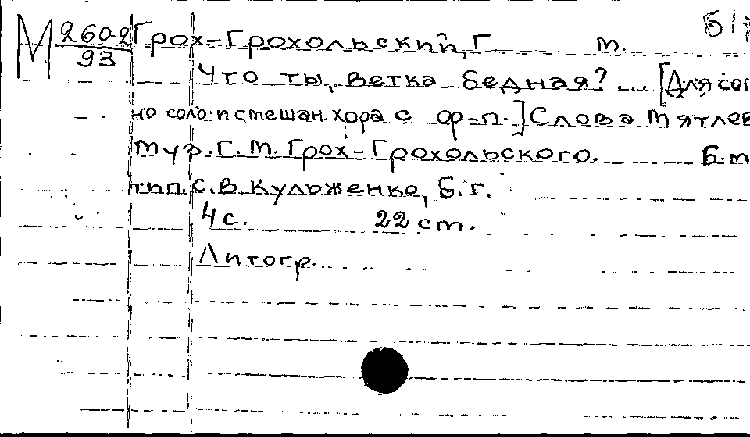 М 260-2/93 Грох-Грохольский, Г. М. Б/г
Что ты, ветка бедная? ... [Для соп
но соло и смешан. хора с ф-п.] Слова Мятлев
Муз. Г. М. Грох-Грохольского. Б.м
тип. С. В. Кульженко, Б. г.
4 с. 22 см.
Литогр.